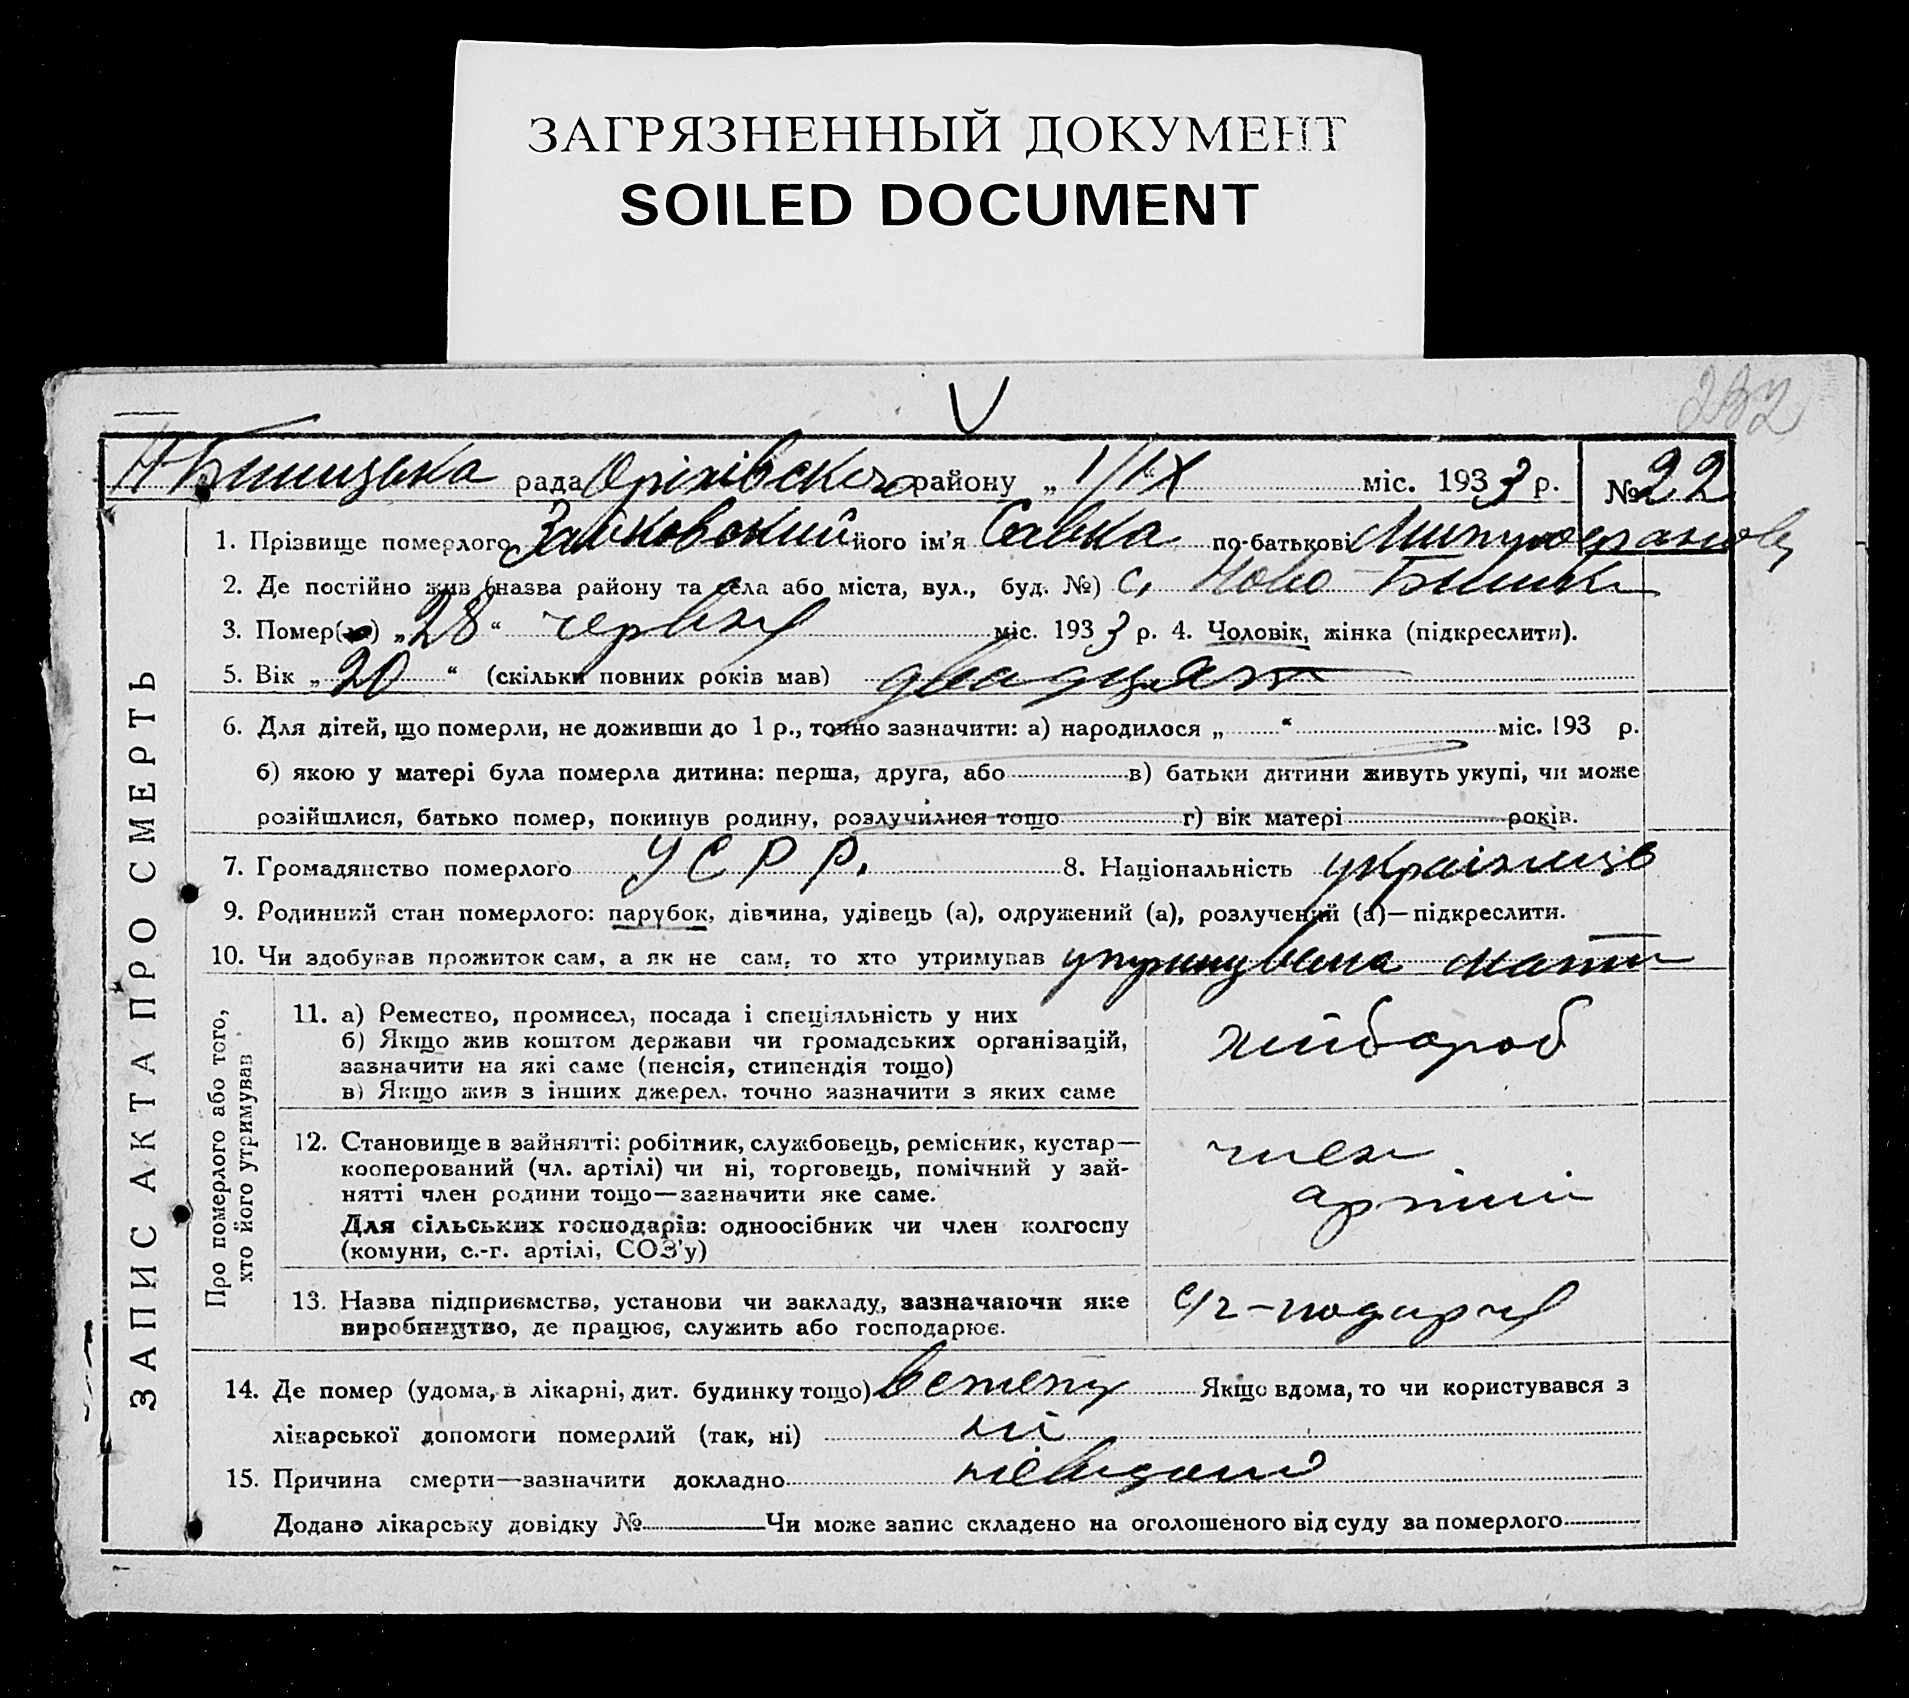 ЗАГРЯЗНЕННЫЙ ДОКУМЕНТ
SOILED DOCUMENT
V
232
рада Оріхівского району „ 1/IX “ міс. 1933 р. № 22
ЗАПИС АКТА ПРО СМЕРТЬ
1. Прізвище померлого Зайковский його ім'я Савка по-батькові
2. Де постійно жив (назва району та села або міста, вул., буд. №) с. Ново-
3. Помер(ла) „28“ червня міс. 1933 р. 4. Чоловік, жінка (підкреслити).
5. Вік „20“ (скільки повних років мав) двадцять
6. Для дітей, що померли, не доживши до 1 р., точно зазначити: а) народилося „ “ міс. 193 р.
б) якою у матері була померла дитина: перша, друга, або в) батьки дитини живуть укупі, чи може
розійшлися, батько помер, покинув родину, розлучилися тощо г) вік матері років.
7. Громадянство померлого УСРР. 8. Національність українець
9. Родинний стан померлого: парубок, дівчина, удівець (а), одружений (а), розлучений (а)—підкреслити.
10. Чи здобував прожиток сам, а як не сам, то хто утримував утримувала мати
Про померлого або того,
хто його утримував
11. а) Ремество, промисел, посада і спеціяльність у них
б) Якщо жив коштом держави чи громадських організацій,
зазначити на які саме (пенсія, стипендія тощо)
в) Якщо жив з інших джерел, точно зазначити з яких саме
хлібороб
12. Становище в зайнятті: робітник, службовець, ремісник, кустар—
кооперований (чл. артілі) чи ні, торговець, помічний у зай-
нятті член родини тощо—зазначити яке саме.
Для сільських господарів: одноосібник чи член колгоспу
(комуни, с.-г. артілі, СОЗ'у)
член
артілі
13. Назва підприємства, установи чи закладу, зазначаючи яке
виробництво, де працює, служить або господарює.
14. Де помер (удома, в лікарні, дит. будинку тощо) в степу Якщо вдома, то чи користувався з
лікарської допомоги померлий (так, ні) ні
15. Причина смерти—зазначити докладно невідомо
Додано лікарську довідку № Чи може запис складено на оголошеного від суду за померлого